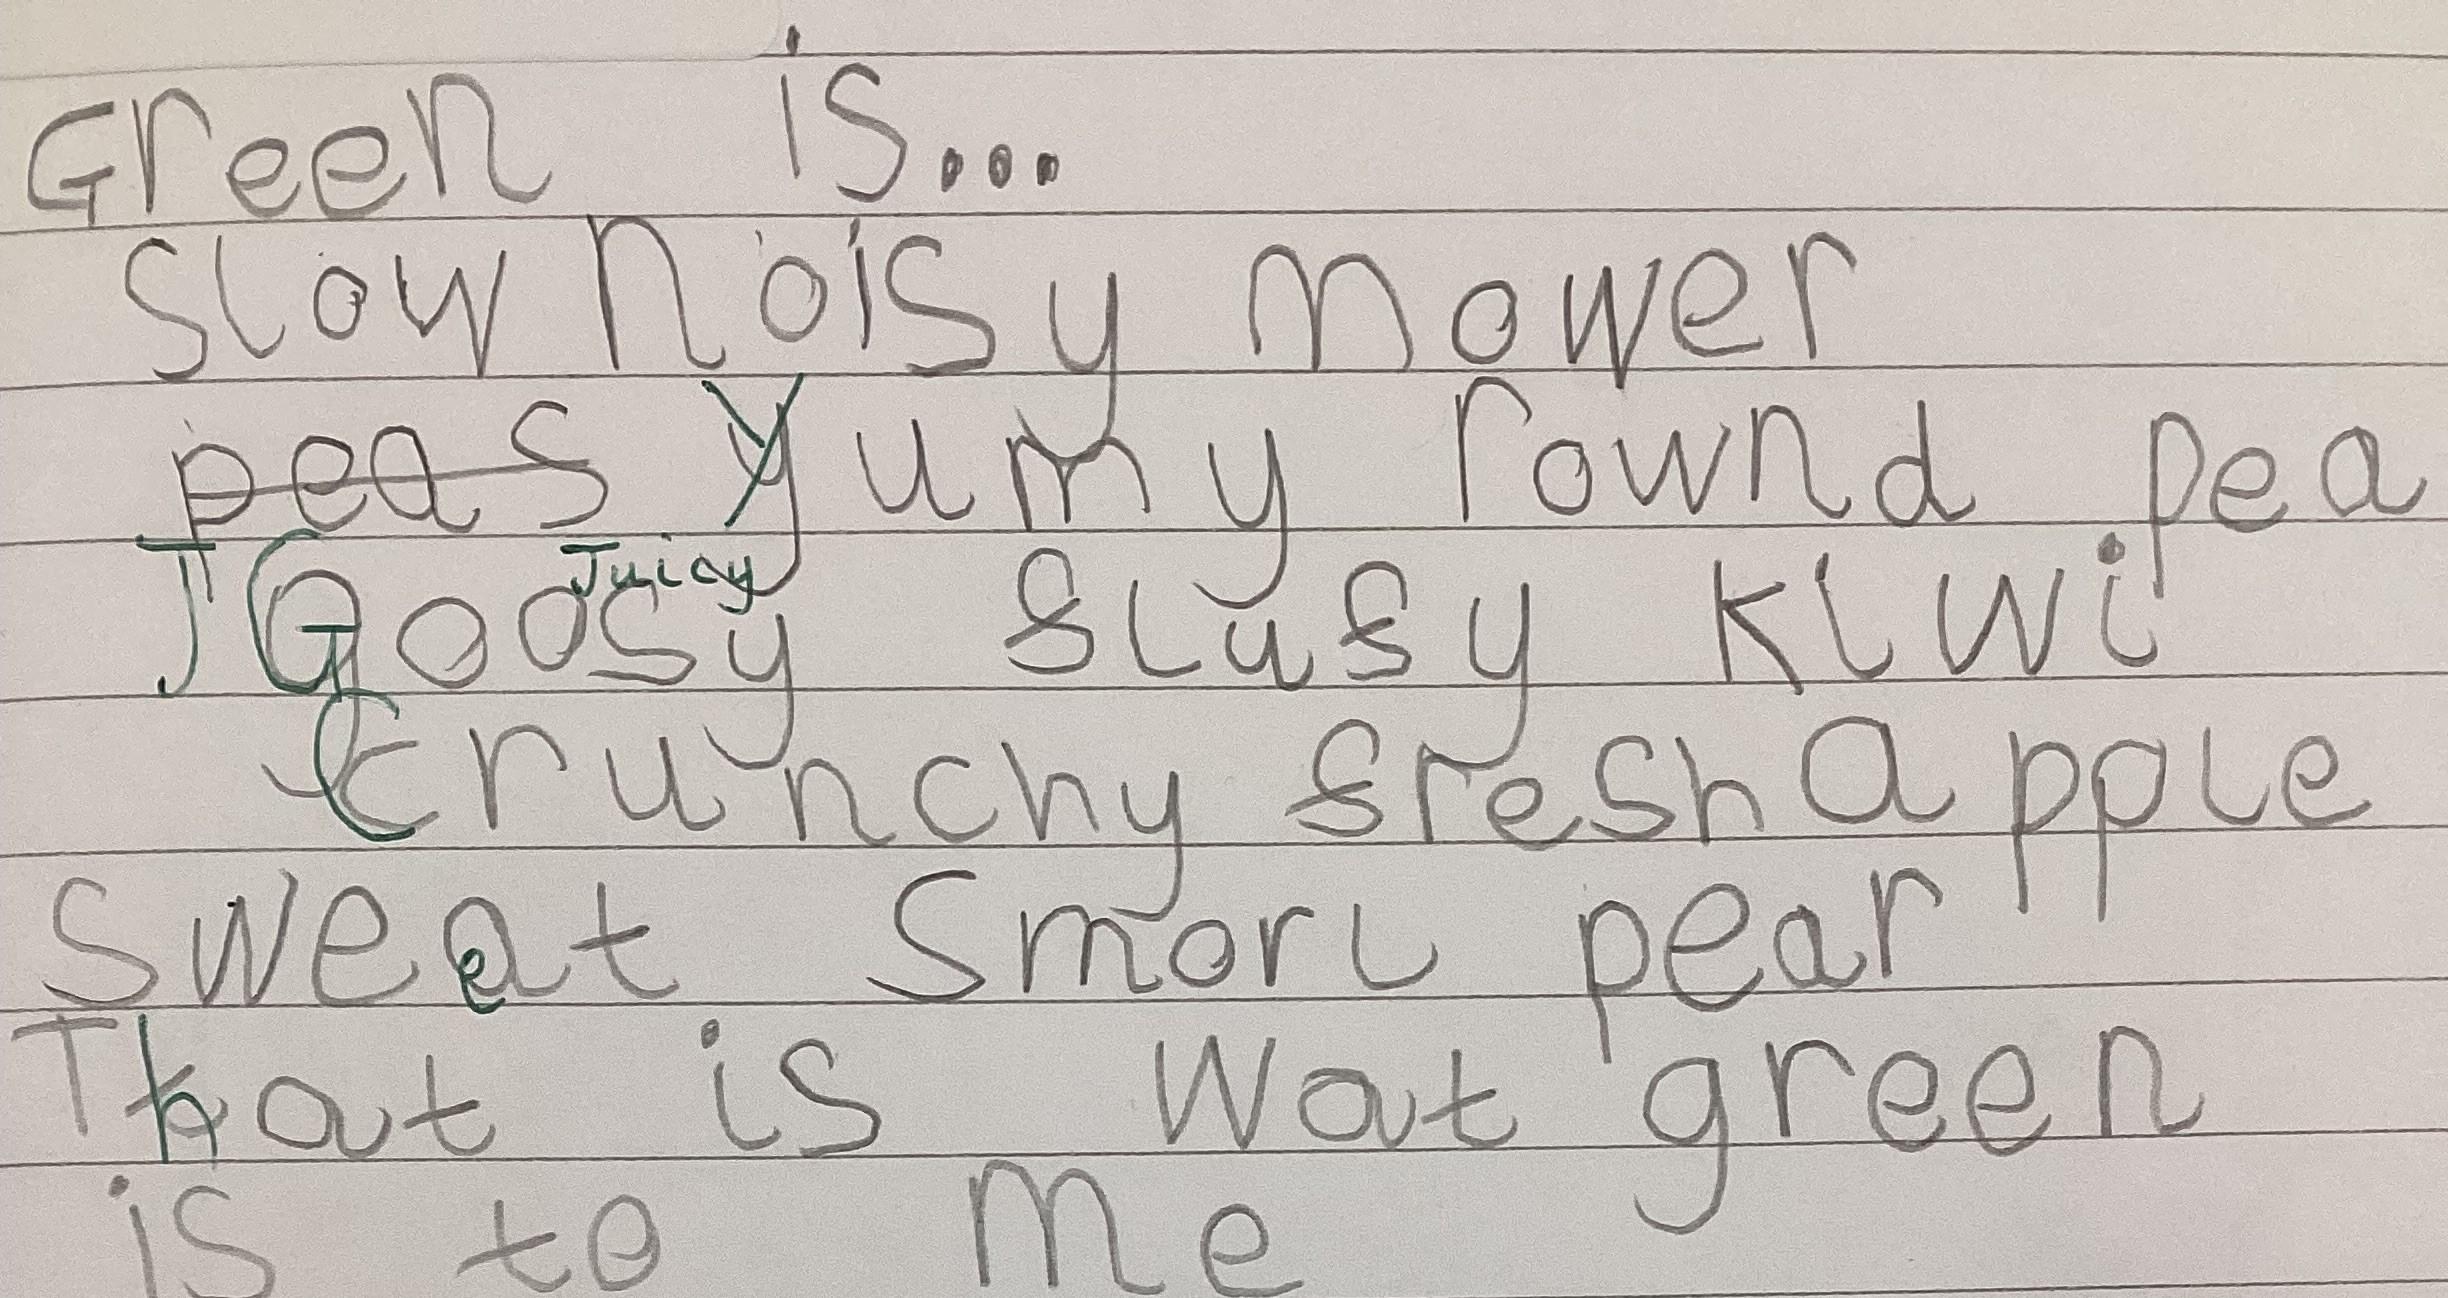 Green is...
slow noisy mower
peas Yumy rownd pea
J Goosy Juicy slusy kiwi
Crunchy fresh apple
Sweet smorl pear
That is wat green
is to me